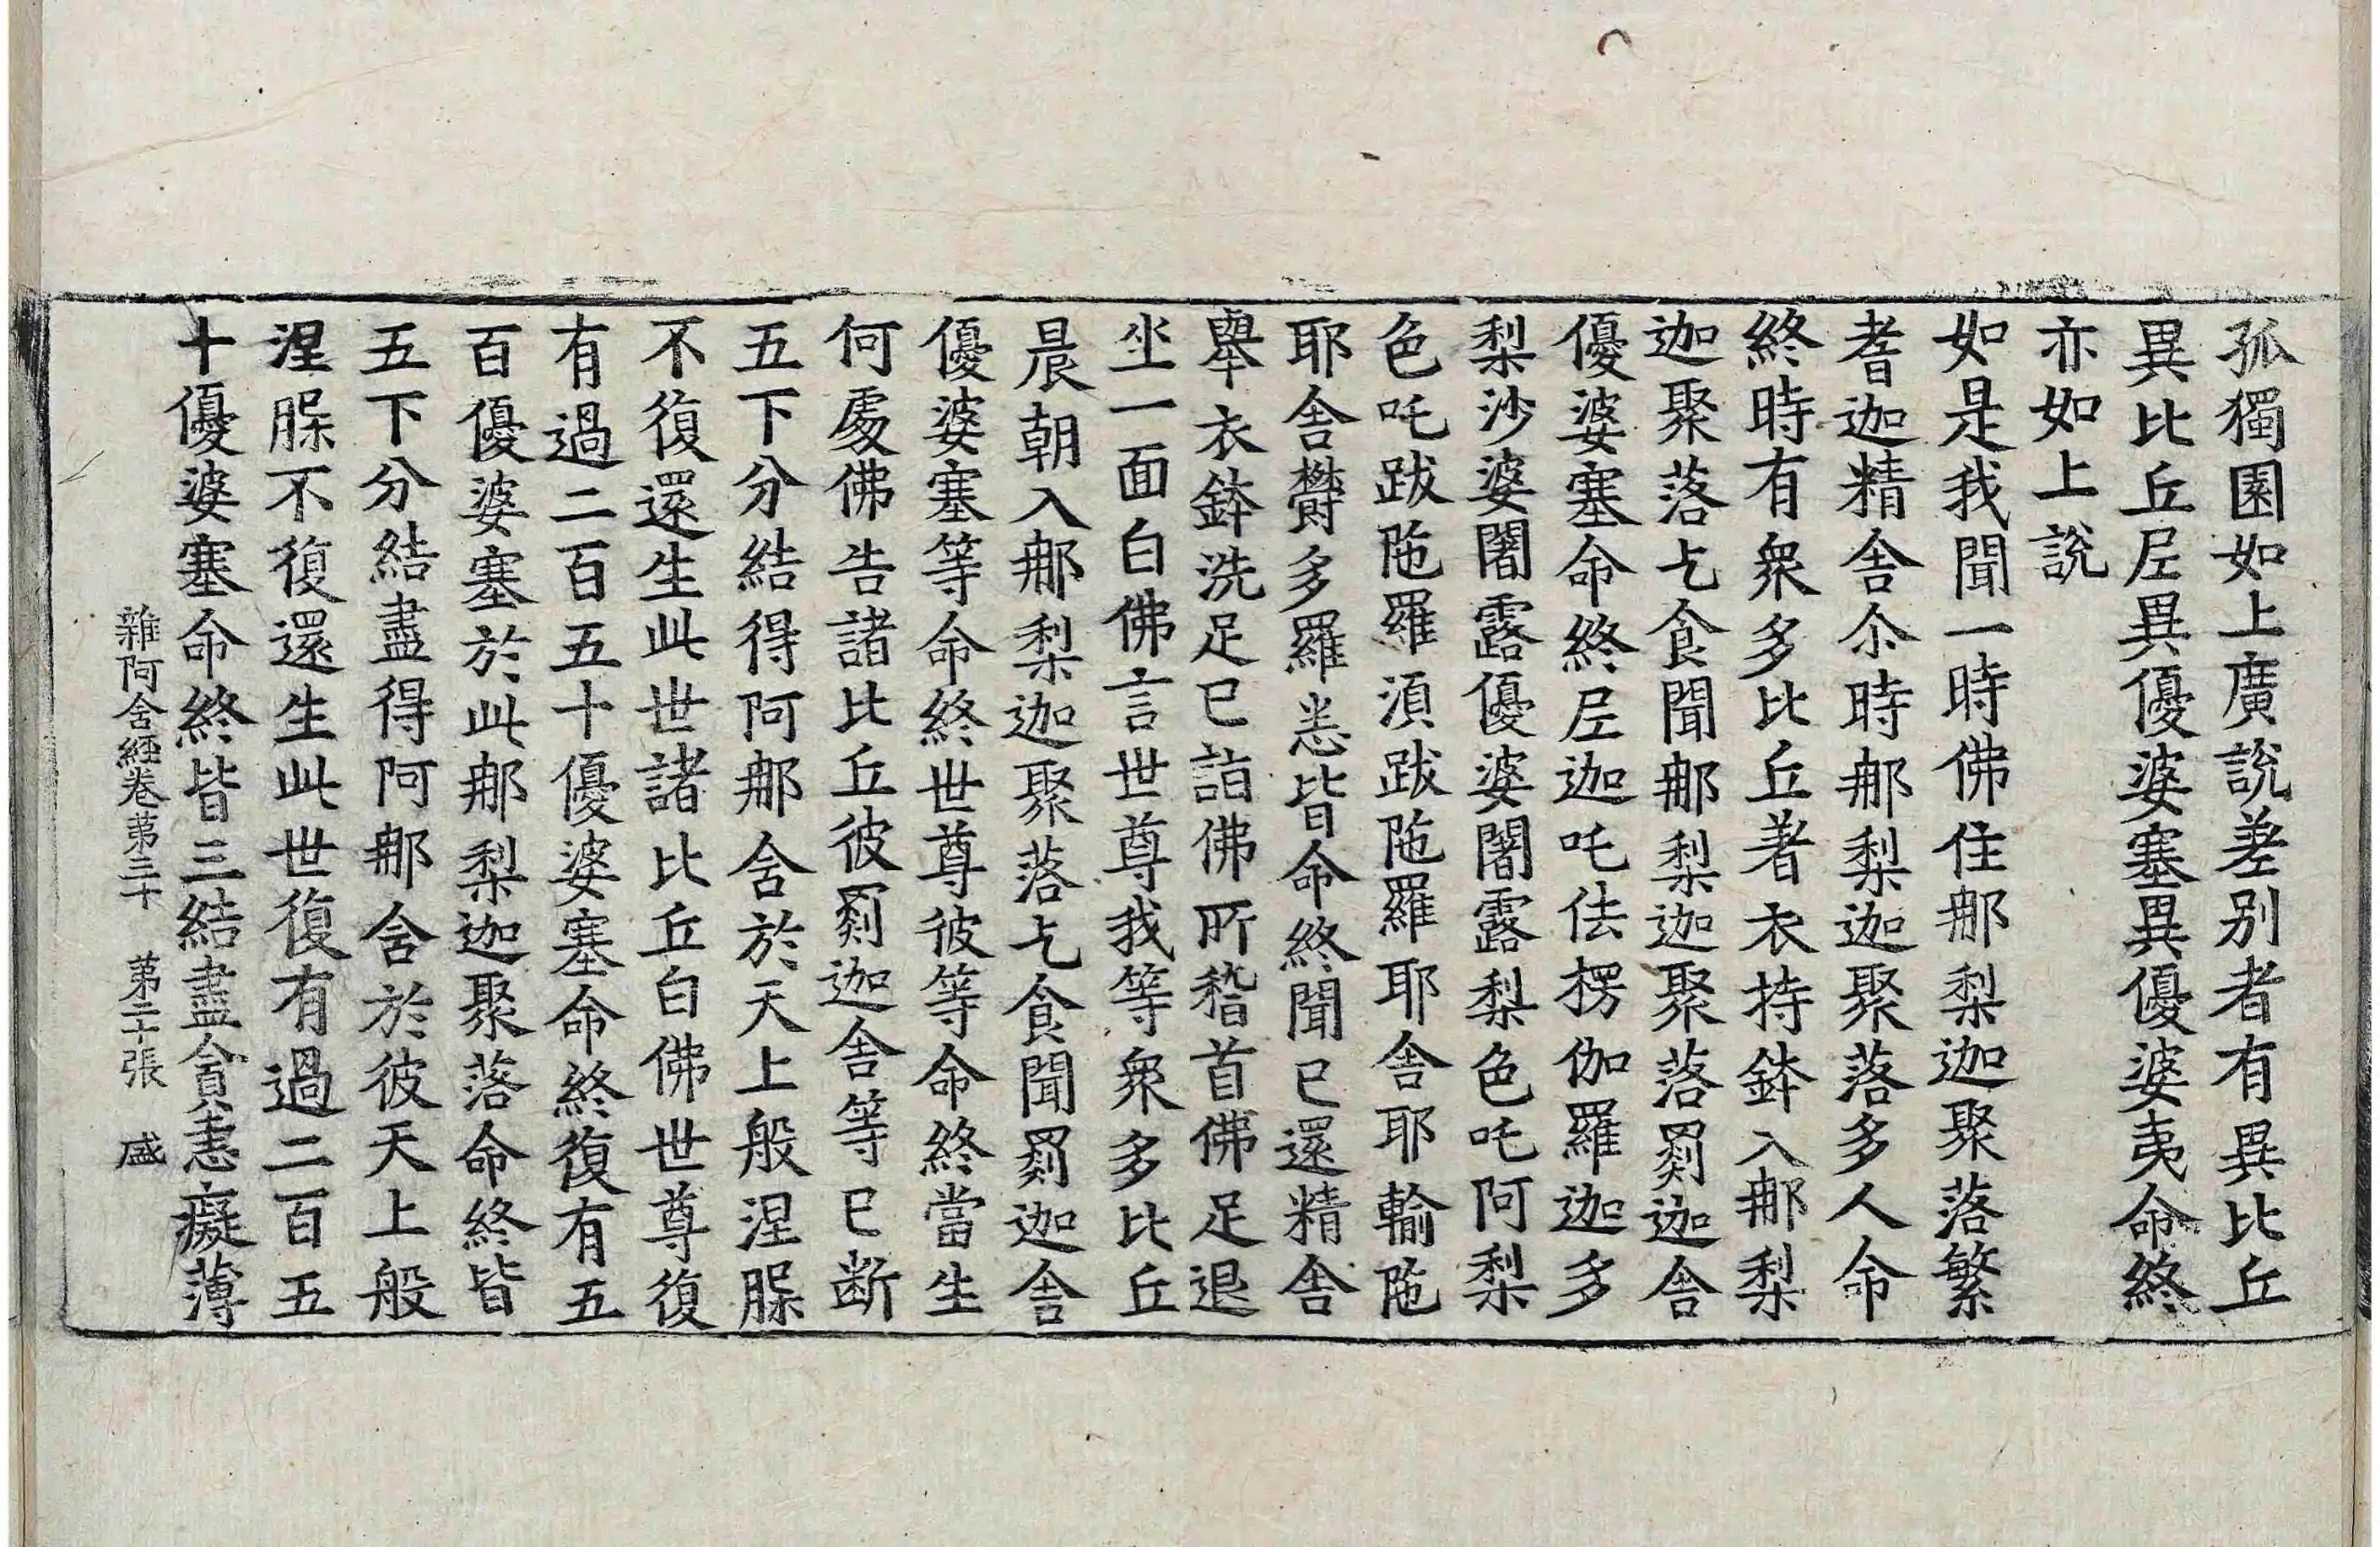 孤獨園如上廣說差別者有異比丘
異比丘尼異優婆塞異優婆夷命終
亦如上說
如是我聞一時佛住那梨迦聚落繁
耆迦精舍尒時那梨迦聚落多人命
終時有衆多比丘著衣持鉢入那梨
迦聚落乞食聞那梨迦聚落罽迦舍
優婆塞命終尼迦吒佉楞伽羅迦多
梨沙婆闍露優婆闍露梨色吒阿梨
色吒跋陁羅湏跋陁羅耶舍耶輸陁
耶舍欝多羅悉皆命終聞已還精舍
舉衣鉢洗足已詣佛所稽首佛足退
坐一面白佛言世尊我等衆多比丘
晨朝入那梨迦聚落乞食聞罽迦舍
優婆塞等命終世尊彼等命終當生
何處佛告諸比丘彼罽迦舍等已断
五下分結得阿那含於天上般涅槃
不復還生此世諸比丘白佛世尊復
有過二百五十優婆塞命終復有五
百優婆塞於此那梨迦聚落命終皆
五下分結盡得阿那含於彼天上般
涅槃不復還生此世復有過二百五
十優婆塞命終皆三結盡貪恚癡薄
雜阿含經卷第三十 第二十張 盛